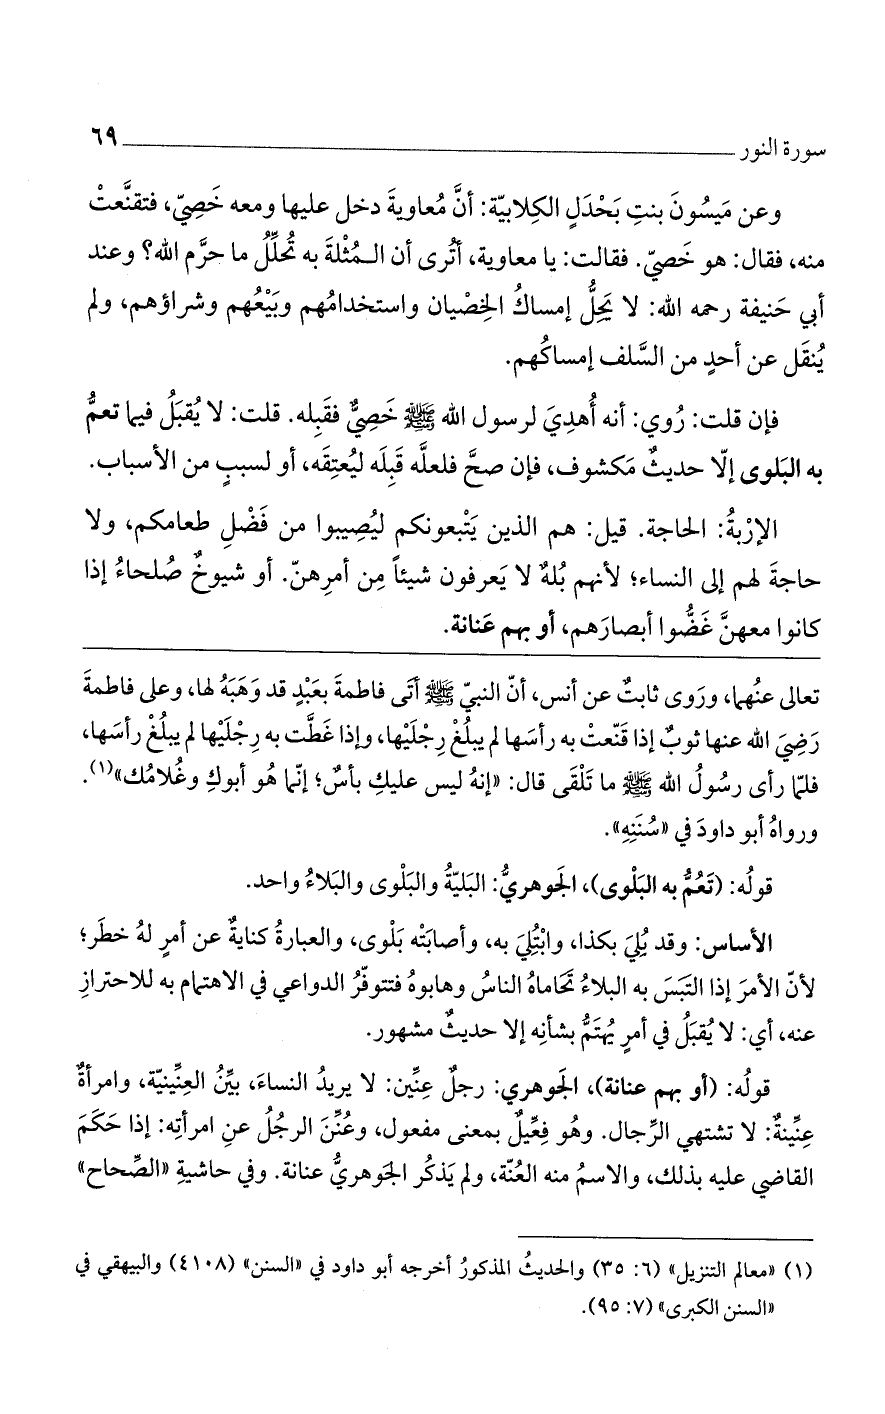 سورة النور ٦٩
وعن مَيسُونَ بنتِ بَحْدَلٍ الكِلابيّة: أنَّ مُعاويةَ دخل عليها ومعه خَصِيّ، فتقنَّعتْ
منه، فقال: هو خَصيّ. فقالت: يا معاوية، أتُرى أن الـمُثْلةَ به تُحلِّلُ ما حرَّم الله؟ وعند
أبي حَنيفة رحمه الله: لا يَحِلُّ إمساكُ الخِصْيان واستخدامُهم وبَيْعُهم وشراؤهم، ولم
يُنقَل عن أحدٍ من السَّلف إمساكُهم.
فإن قلت: رُوي: أنه أُهدِيَ لرسول الله ﷺ خَصِيٌّ فقَبِله. قلت: لا يُقبَلُ فيما تعمُّ
به البَلوى إلّا حديثٌ مَكشوف، فإن صحَّ فلعلَّه قَبِلَه ليُعتِقَه، أو لسببٍ من الأسباب.
الإرْبةُ: الحاجة. قيل: هم الذين يَتْبعونكم ليُصِيبوا من فَضْلِ طعامكم، ولا
حاجةَ لهم إلى النساء؛ لأنهم بُلهٌ لا يَعرفون شيئاً مِن أمرِهنّ. أو شيوخٌ صُلحاءُ إذا
كانوا معهنَّ غَضُّوا أبصارَهم، أو بهم عَنانة.
تعالى عنُهما، ورَوى ثابتٌ عن أنس، أنّ النبيّ ﷺ أتَى فاطمةَ بعَبْدٍ قد وَهَبَهُ لها، وعلى فاطمةَ
رَضِيَ الله عنها ثوبٌ إذا قَنّعتْ به رأسَها لم يبلُغْ رِجْلَيْها، وإذا غَطَّت به رِجْلَيْها لم يبلُغْ رأسَها،
فلمّا رأى رسُولُ الله ﷺ ما تَلْقَى قال: «إنهُ ليس عليكِ بأسٌ؛ إنّما هُو أبوكِ وغُلامُك»(١).
ورواهُ أبو داودَ في «سُنَنِهِ».
قولُه: (تَعُمُّ به البَلْوى)، الجَوهريُّ: البَليّةُ والبَلْوى والبَلاءُ واحد.
الأساس: وقد بُلِيَ بكذا، وابْتُلِيَ به، وأصابَتْه بَلْوى، والعبارةُ كنايةٌ عن أمرٍ لهُ خطَر؛
لأنّ الأمرَ إذا التَبَسَ به البلاءُ تَحاماهُ الناسُ وهابوهُ فتتوفّرُ الدواعي في الاهتمام به للاحترازِ
عنه، أي: لا يُقبَلُ في أمرٍ يُهتَمُّ بشأنِه إلا حديثٌ مشهور.
قولُه: (أو بهم عنانة)، الجَوهري: رجلٌ عِنِّين: لا يريدُ النساءَ، بيِّنُ العِنِّينيّة، وامرأةٌ
عِنِّينةٌ: لا تشتهي الرِّجال. وهو فِعِّيلٌ بمعنى مفعول، وعُنِّنَ الرجُلُ عنِ امرأتِه: إذا حَكَمَ
القاضي عليه بذلك، والاسمُ منه العُنّة، ولم يَذكُر الجَوهريُّ عنانة. وفي حاشيةِ «الصِّحاح»
(١) «معالم التنزيل» (٦: ٣٥) والحديثُ المذكورُ أخرجه أبو داود في «السنن» (٤١٠٨) والبيهقي في
«السنن الكبرى» (٧: ٩٥).